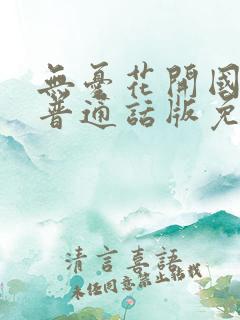 無憂花開國
普通話版免
清言喜語
未经同意禁止转载